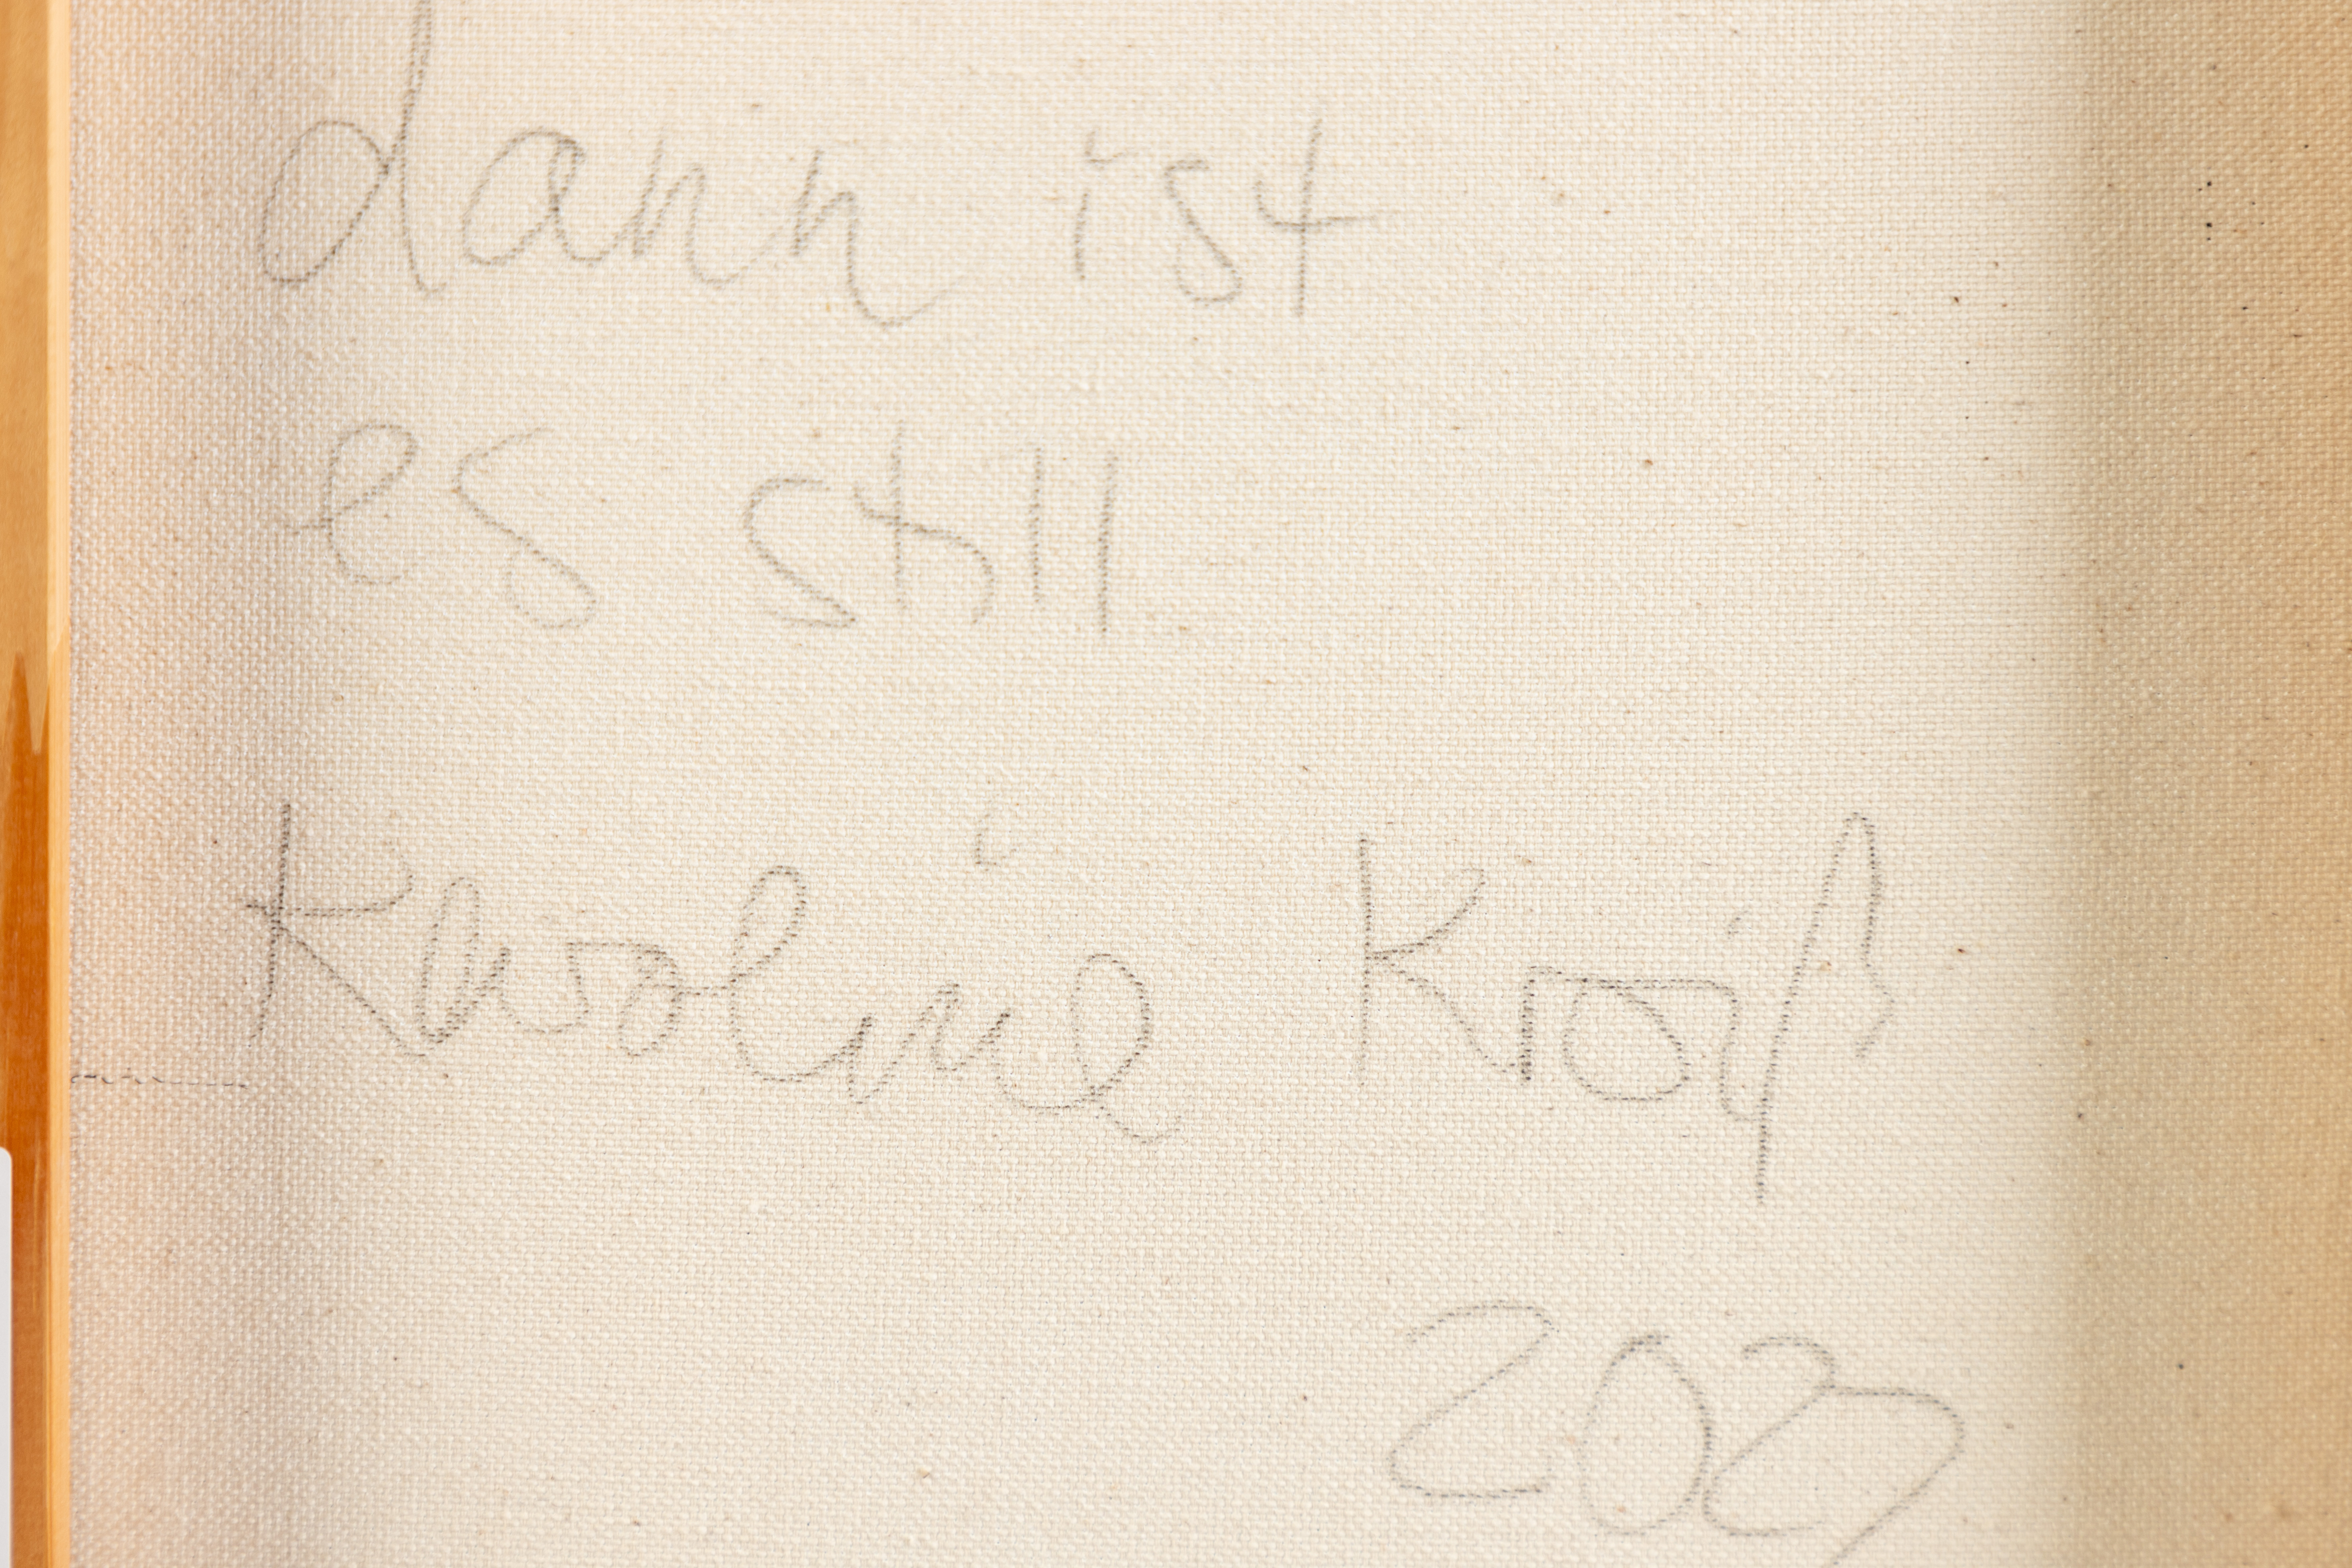 dann ist
es still
Karoline Kroiß
2023